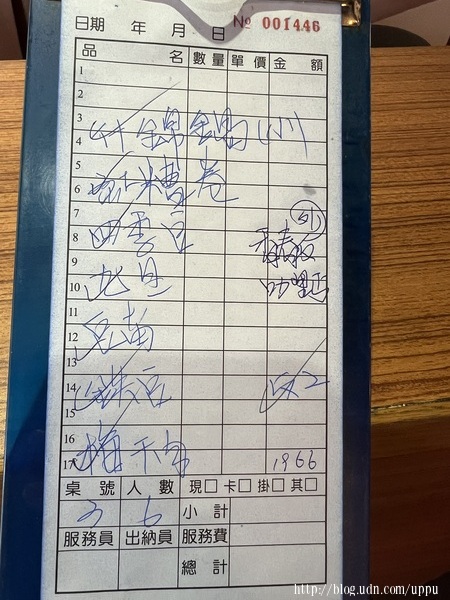 日期 年 月 日 № 001446
品 名 數量 單價 金 額
1
2
3
4 什錦鍋(小)
5
6 紅糟卷
7
8 四季豆
9
10
11
12 豆苗
13
14
15
16
17 梅干
1966
桌號 人數 現□ 卡□ 掛□ 其□
3 6 小計
服務員 出納員 服務費
總計
http://blog.udn.com/uppu